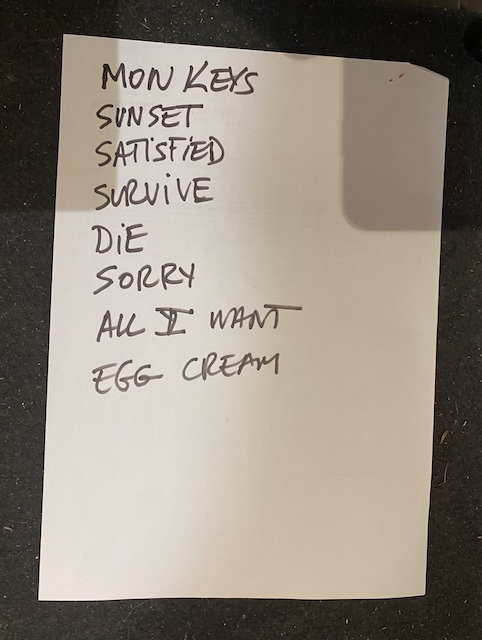 MONKEYS
SUNSET
SATiSFiED
SURViVE
DiE
SORRY
ALL I WANT
EGG CREAM